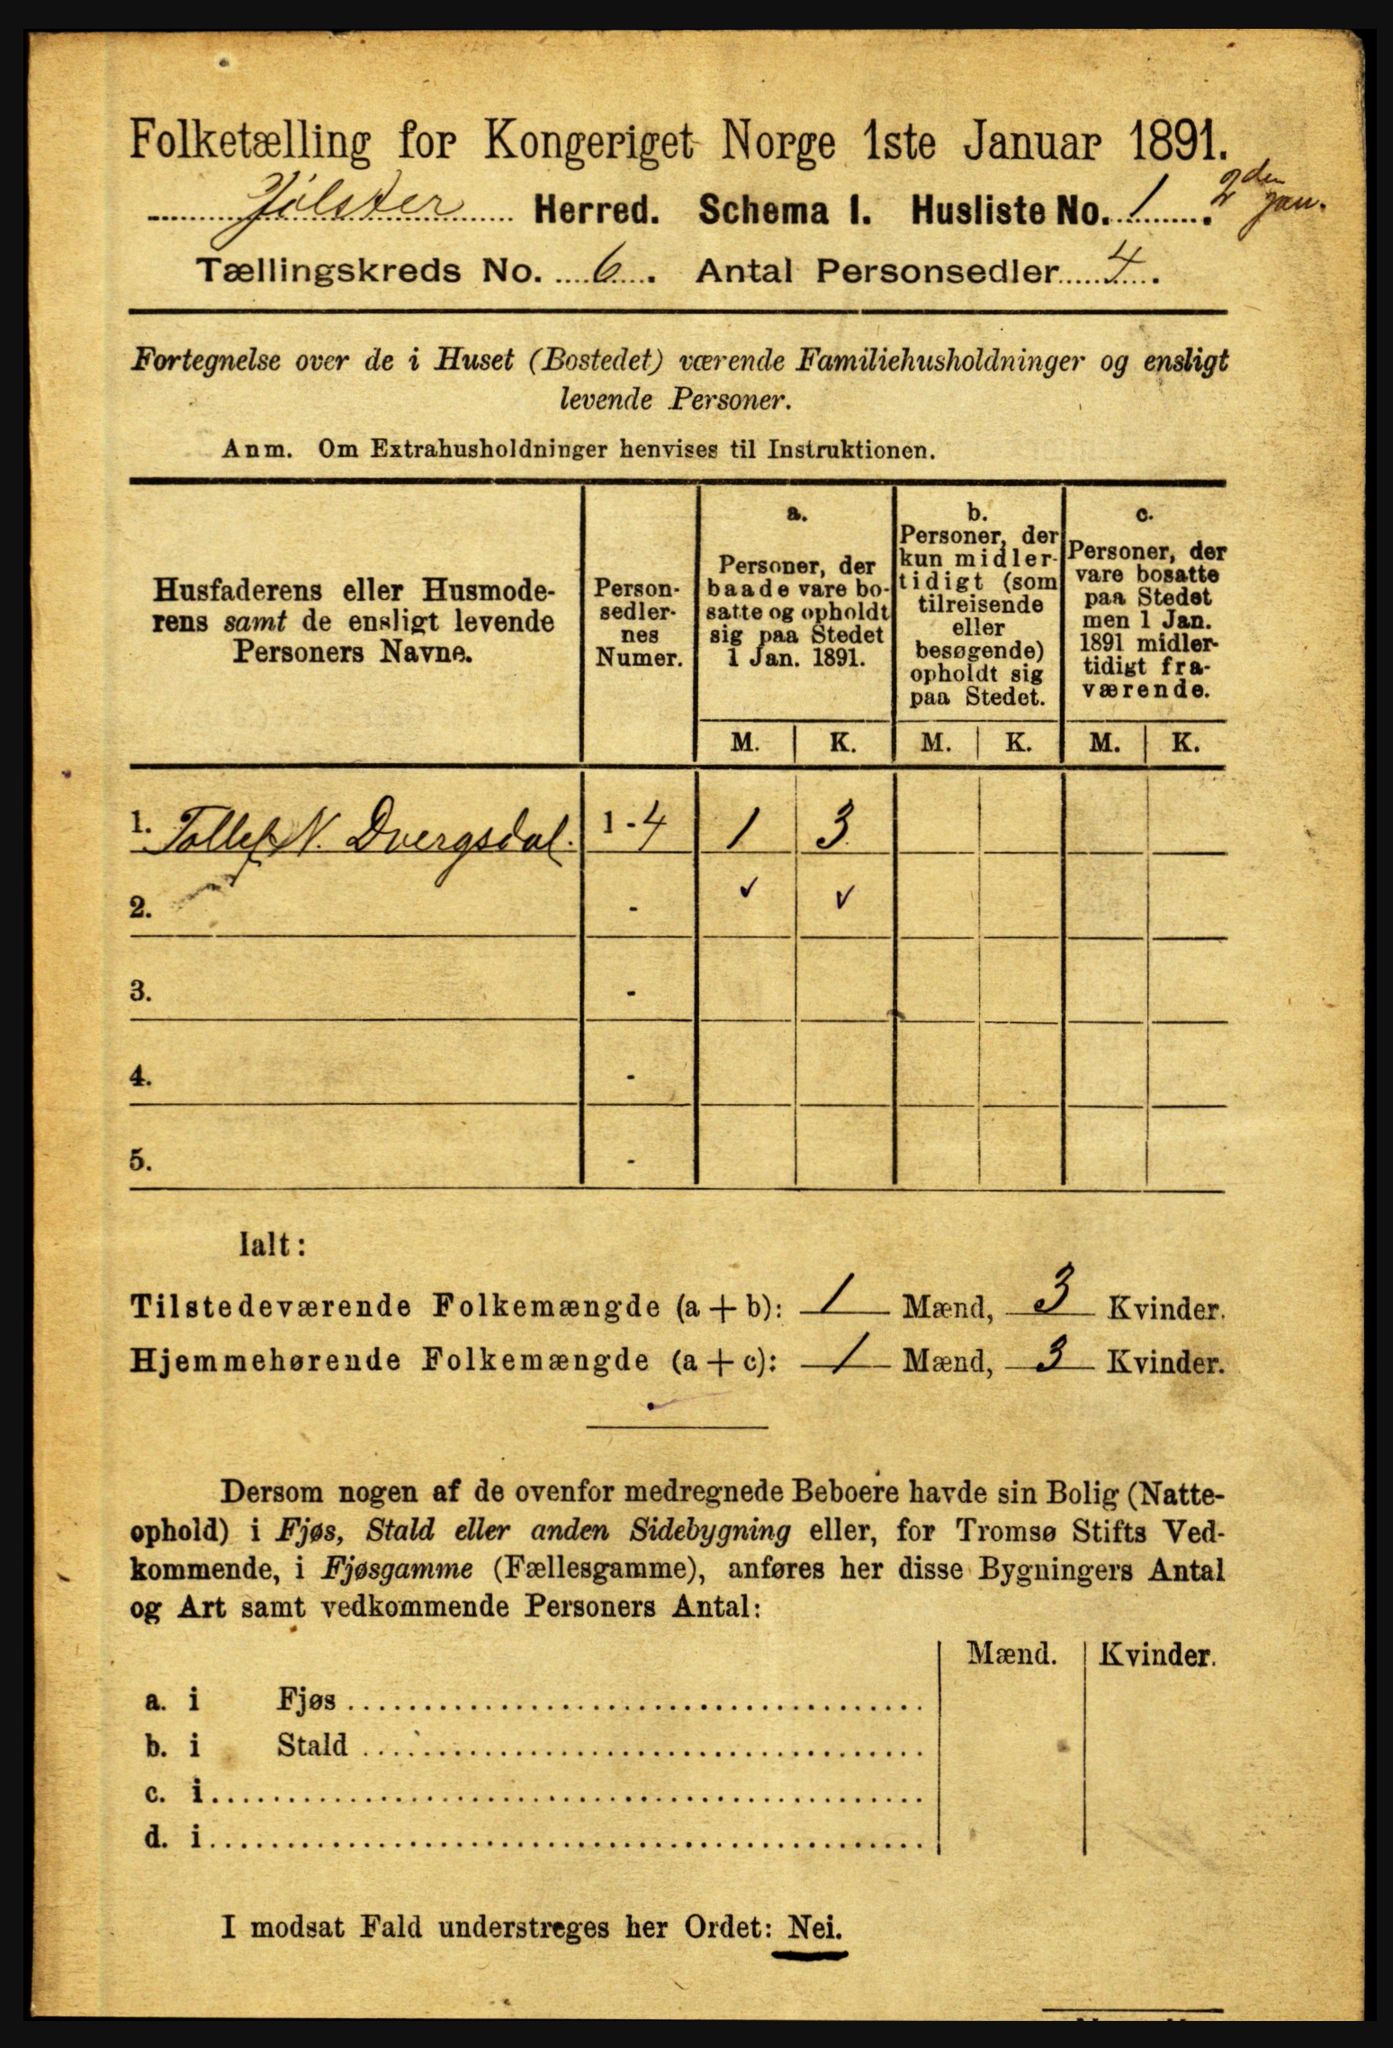 Folketælling for Kongeriget Norge 1ste Januar 1891.
Jølster Herred. Schema I. Husliste No. 1. 2den Jan.
Tællingskreds No. 6. Antal Personsedler 4.
Fortegnelse over de i Huset (Bostedet) værende Familiehusholdninger og ensligt
levende Personer.
Anm. Om Extrahusholdninger henvises til Instruktionen.
Husfaderens eller Husmode-
rens samt de ensligt levende
Personers Navne.
Person-
sedler-
nes
Numer.
a.
Personer, der
baade vare bo-
satte og opholdt
sig paa Stedet
1 Jan. 1891.
b.
Personer, der
kun midler-
tidigt (som
tilreisende
eller
besøgende)
opholdt sig
paa Stedet.
c.
Personer, der
vare bosatte
paa Stedet
men 1 Jan.
1891 midler-
tidigt fra-
værende.
M. K. M. K. M. K.
1. Tollef N. Dvergsdal. 1 - 4 1 3
2. - ✓ ✓
3. -
4. -
5. -
Ialt:
Tilstedeværende Folkemængde (a + b): 1 Mænd, 3 Kvinder.
Hjemmehørende Folkemængde (a + c): 1 Mænd, 3 Kvinder.
Dersom nogen af de ovenfor medregnede Beboere havde sin Bolig (Natte-
ophold) i Fjøs, Stald eller anden Sidebygning eller, for Tromsø Stifts Ved-
kommende, i Fjøsgamme (Fællesgamme), anføres her disse Bygningers Antal
og Art samt vedkommende Personers Antal:
Mænd. Kvinder.
a. i Fjøs
b. i Stald
c. i
d. i
I modsat Fald understreges her Ordet: Nei.